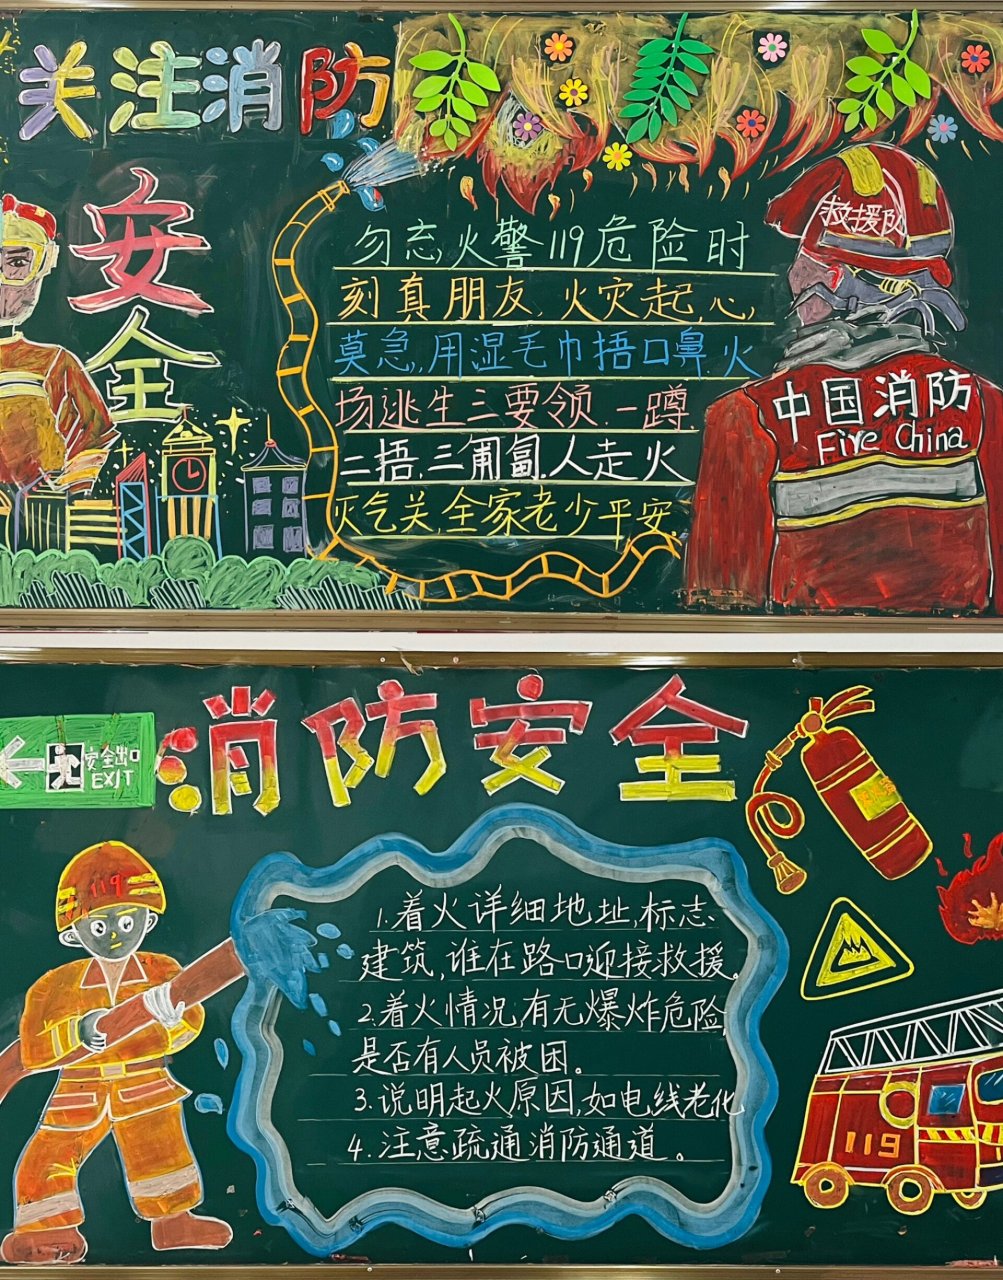 关注消防
安全
救援队
勿忘火警119危险时
刻真朋友,火灾起,心
莫急,用湿毛巾捂口鼻.火
场逃生三要领.一蹲.
二捂.三匍匐.人走火
灭气关,全家老少平安
中国消防
Fire China
消防安全
安全出口
EXIT
119
1.着火详细地址,标志
建筑,谁在路口迎接救援。
2.着火情况,有无爆炸危险,
是否有人员被困。
3.说明起火原因,如电线老化
4.注意疏通消防通道。
119